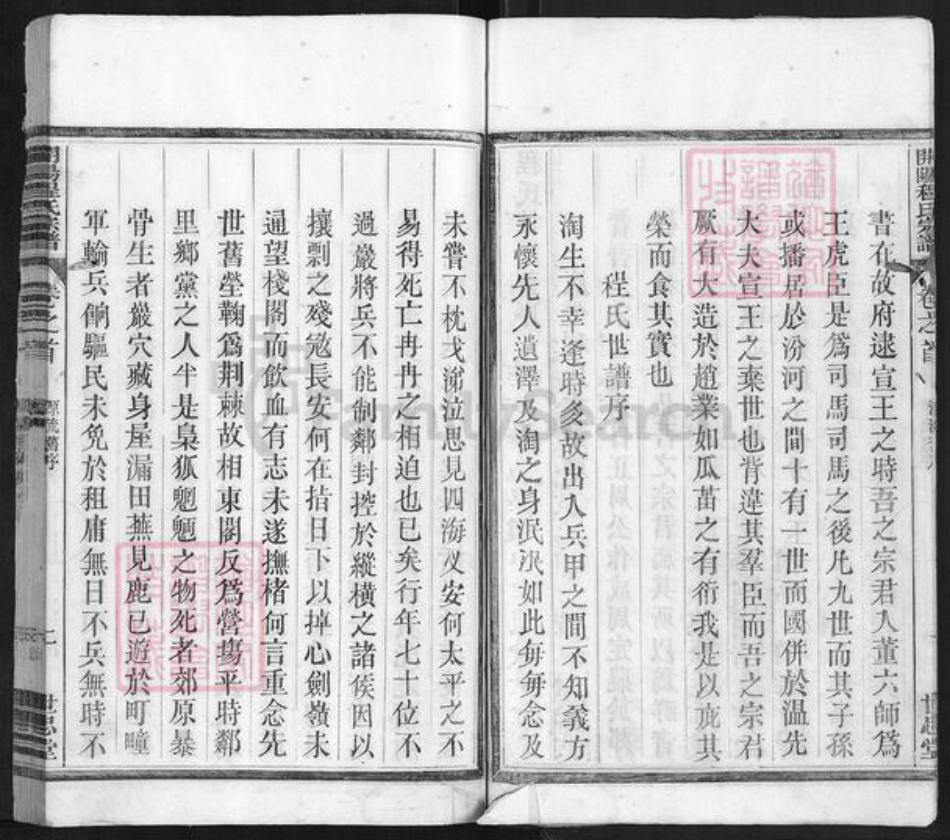 書在故府逮宣王之時吾之宗君入董六師爲
王虎臣是爲司馬司馬之後凡九世而其子孫
或播居於汾河之間十有一世而國併於溫先
大夫宣王之棄世也背違其羣臣而吾之宗君
厥有大造於趙業如瓜苗之有衍我是以庇其
榮而食其實也
程氏世譜序
淘生不幸逢時亥故出入兵甲之間不知義方
永懷先人遺澤及淘之身泯泯如此每每念及
未嘗不枕戈涕泣思見四海乂安何太平之不
易得死亡冉冉之相迫也已矣行年七十位不
過巖將兵不能制鄰封控於縱横之諸侯因以
攘剽之殘寇長安何在指日下以掉心劍嶺未
通望棧閣而飲血有志未遂撫楮何言重念先
世舊塋鞠爲荆棘故相東閣反爲營塲平時鄰
里鄉黨之人半是梟狐魍魎之物死者郊原暴
骨生者巖穴藏身屋漏田蕪見鹿已遊於町疃
軍輸兵餉驅民未免於租庸無日不兵無時不
開陽程氏宗譜
卷之首
源流舊序
世忠堂
FamilySearch